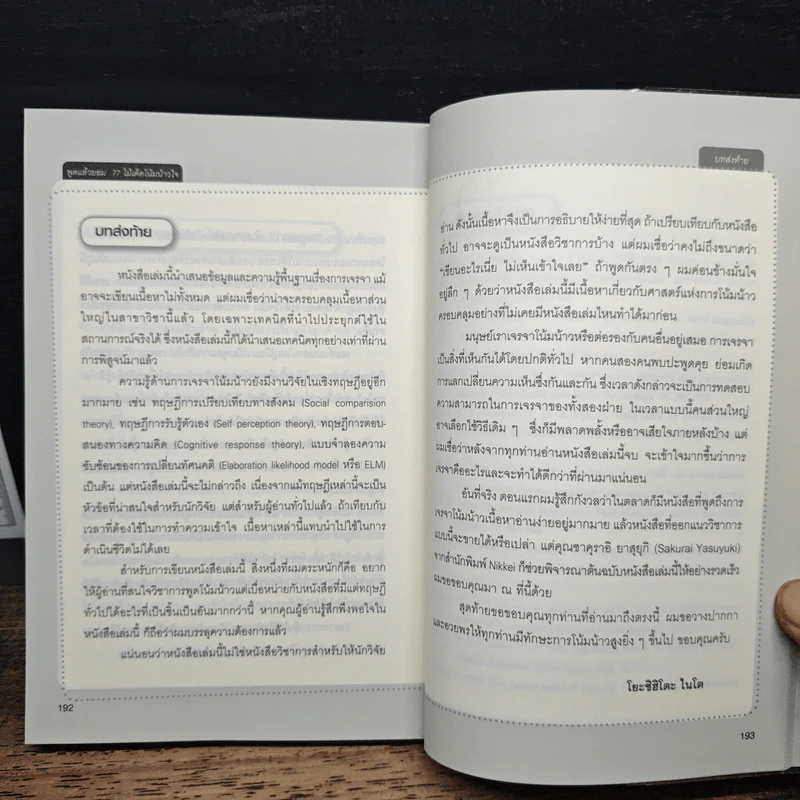 พูดแล้วยอม 77 ไม้เด็ดโน้มน้าวใจ
บทส่งท้าย
หนังสือเล่มนี้นำเสนอข้อมูลและความรู้พื้นฐานเรื่องการเจรจา แม้
อาจจะเขียนเนื้อหาไม่ทั้งหมด แต่ผมเชื่อว่าน่าจะครอบคลุมเนื้อหาส่วน
ใหญ่ในสาขาวิชานี้แล้ว โดยเฉพาะเทคนิคที่นำไปประยุกต์ใช้ใน
สถานการณ์จริงได้ ซึ่งหนังสือเล่มนี้ก็ได้นำเสนอเทคนิคทุกอย่างเท่าที่ผ่าน
การพิสูจน์มาแล้ว
ความรู้ด้านการเจรจาโน้มน้าวยังมีงานวิจัยในเชิงทฤษฎีอยู่อีก
มากมาย เช่น ทฤษฎีการเปรียบเทียบทางสังคม (Social comparision
theory), ทฤษฎีการรับรู้ตัวเอง (Self perception theory), ทฤษฎีการตอบ-
สนองทางความคิด (Cognitive response theory), แบบจำลองความ
ซับซ้อนของการเปลี่ยนทัศนคติ (Elaboration likelihood model หรือ ELM)
เป็นต้น แต่หนังสือเล่มนี้จะไม่กล่าวถึง เนื่องจากแม้ทฤษฎีเหล่านี้จะเป็น
หัวข้อที่น่าสนใจสำหรับนักวิจัย แต่สำหรับผู้อ่านทั่วไปแล้ว ถ้าเทียบกับ
เวลาที่ต้องใช้ในการทำความเข้าใจ เนื้อหาเหล่านี้แทบนำไปใช้ในการ
ดำเนินชีวิตไม่ได้เลย
สำหรับการเขียนหนังสือเล่มนี้ สิ่งหนึ่งที่ผมตระหนักก็คือ อยาก
ให้ผู้อ่านที่สนใจวิชาการพูดโน้มน้าวแต่เบื่อหน่ายกับหนังสือที่มีแต่ทฤษฎี
ทั่วไปได้อะไรที่เป็นชิ้นเป็นอันมากกว่านี้ หากคุณผู้อ่านรู้สึกพึงพอใจใน
หนังสือเล่มนี้ ก็ถือว่าผมบรรลุความต้องการแล้ว
แน่นอนว่าหนังสือเล่มนี้ไม่ใช่หนังสือวิชาการสำหรับให้นักวิจัย
192
บทส่งท้าย
อ่าน ดังนั้นเนื้อหาจึงเป็นการอธิบายให้ง่ายที่สุด ถ้าเปรียบเทียบกับหนังสือ
ทั่วไป อาจจะดูเป็นหนังสือวิชาการบ้าง แต่ผมเชื่อว่าคงไม่ถึงขนาดว่า
"เขียนอะไรเนี่ย ไม่เห็นเข้าใจเลย" ถ้าพูดกันตรง ๆ ผมค่อนข้างมั่นใจ
อยู่ลึก ๆ ด้วยว่าหนังสือเล่มนี้มีเนื้อหาเกี่ยวกับศาสตร์แห่งการโน้มน้าว
ครอบคลุมอย่างที่ไม่เคยมีหนังสือเล่มไหนทำได้มาก่อน
มนุษย์เราเจรจาโน้มน้าวหรือต่อรองกับคนอื่นอยู่เสมอ การเจรจา
เป็นสิ่งที่เห็นกันได้โดยปกติทั่วไป หากคนสองคนพบปะพูดคุย ย่อมเกิด
การแลกเปลี่ยนความเห็นซึ่งกันและกัน ซึ่งเวลาดังกล่าวจะเป็นการทดสอบ
ความสามารถในการเจรจาของทั้งสองฝ่าย ในเวลาแบบนี้คนส่วนใหญ่
อาจเลือกใช้วิธีเดิม ๆ ซึ่งก็มีพลาดพลั้งหรืออาจเสียใจภายหลังบ้าง แต่
ผมเชื่อว่าหลังจากทุกท่านอ่านหนังสือเล่มนี้จบ จะเข้าใจมากขึ้นว่าการ
เจรจาคืออะไรและจะทำได้ดีกว่าที่ผ่านมาแน่นอน
อันที่จริง ตอนแรกผมรู้สึกกังวลว่าในตลาดก็มีหนังสือที่พูดถึงการ
เจรจาโน้มน้าวเนื้อหาอ่านง่ายอยู่มากมาย แล้วหนังสือที่ออกแนววิชาการ
แบบนี้จะขายได้หรือเปล่า แต่คุณซาคุราอิ ยาสุยูกิ (Sakurai Yasuyuki)
จากสำนักพิมพ์ Nikkei ก็ช่วยพิจารณาต้นฉบับหนังสือเล่มนี้ให้อย่างรวดเร็ว
ผมขอขอบคุณมา ณ ที่นี้ด้วย
สุดท้ายขอขอบคุณทุกท่านที่อ่านมาถึงตรงนี้ ผมขอวางปากกา
และอวยพรให้ทุกท่านมีทักษะการโน้มน้าวสูงยิ่ง ๆ ขึ้นไป ขอบคุณครับ
โยะชิฮิโตะ ไนโต
193